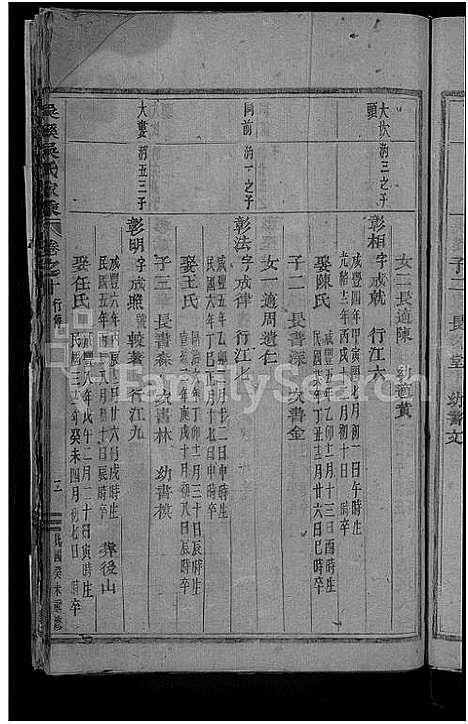 大坎湾三之子
頭
女二長適陳 幼適黃
彰相字咸就 行江六
咸豐四年甲寅潤七月初一日午時生
光緒十二年丙戌十月初十日 時卒
娶陳氏
咸豐五年乙卯十二月十三日酉時生
年丁丑三月廿六日巳時卒
子二 長書森 次書金
女一適周遺仁
同前 湾一之子
彰法字咸律 行江七
咸豐五年乙卯三月廿二日申時生
民國六年丁 月十七日申時卒
娶王氏
年丁卯三月三十日辰時生
年 八月初八日辰時卒
子三 長書森 次書林 幼書模
大婁湾五三子
彰明字咸照號較著 行江九
咸豐六年丙辰三月廿六日戌時生
民國五年丙辰八月 十日辰時卒 葬後山
娶任氏
咸豐八年戊午二月二十日寅時生
民國三十二年癸未四月初七日 時卒
吳氏家乘 卷之十 行傳 三 民國癸未重修
子二 長 堂 幼書文
FamilySearch